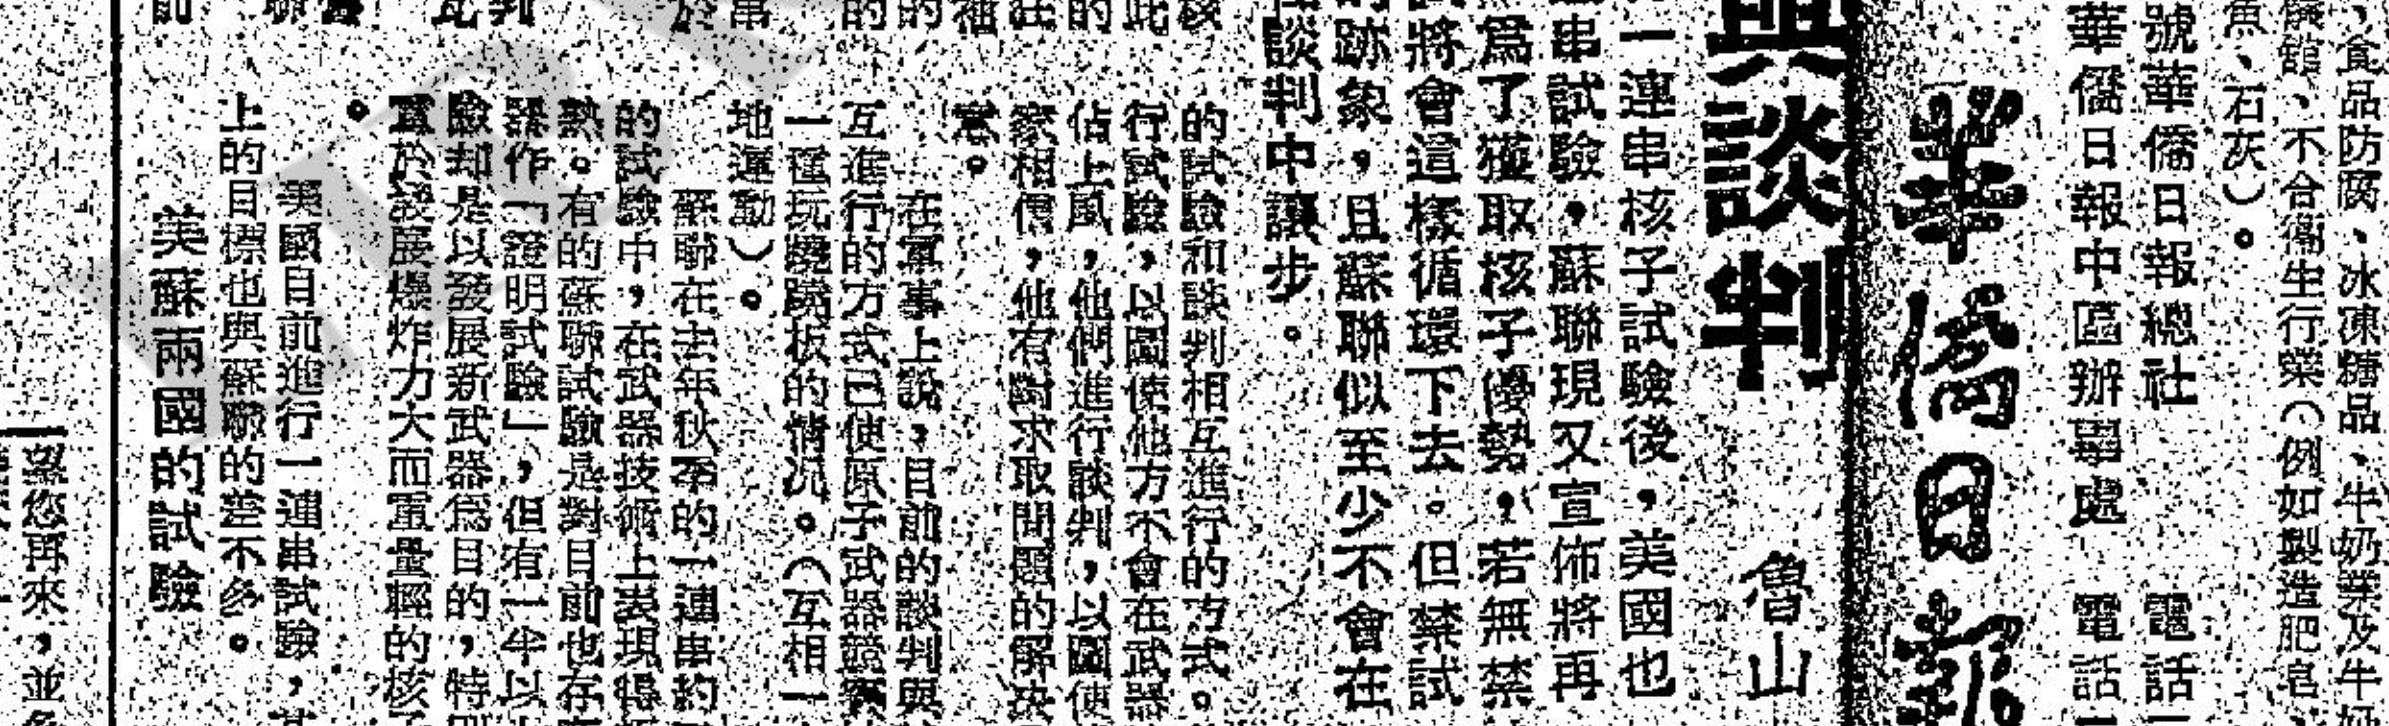 、食品防腐、冰凍糖品、牛奶業及牛奶
館、不合衞生行業（例如製造肥皂、
魚、石灰）。
號華僑日報總社 電話
華僑日報中區辦事處 電話
華僑日報
與談判 魯山
一連串核子試驗後，美國也
串試驗，蘇聯現又宣佈將再
爲了獲取核子優勢，若無禁
將會這樣循環下去。但禁試
的跡象，且蘇聯似至少不會在
談判中讓步。
的試驗和談判相互進行的方式。
行試驗，以圖使他方不會在武器
佔上風，他們進行談判，以圖使
家相信，他有對求取問題的解决
意。
在軍事上說，目前的談判與
互進行的方式已使原子武器競賽
一種玩蹺蹺板的情况。（互相一
地運動）。
蘇聯在去年秋季的一連串的
的試驗中，在武器技術上表現得
熟。有的蘇聯試驗是對目前也存
器作「證明試驗」，但有一半以
驗却是以發展新武器爲目的，特別
置於發展爆炸力大而重量輕的核子
。
美國目前進行一連串試驗，其
上的目標也與蘇聯的差不多。
美蘇兩國的試驗
望您再來，並